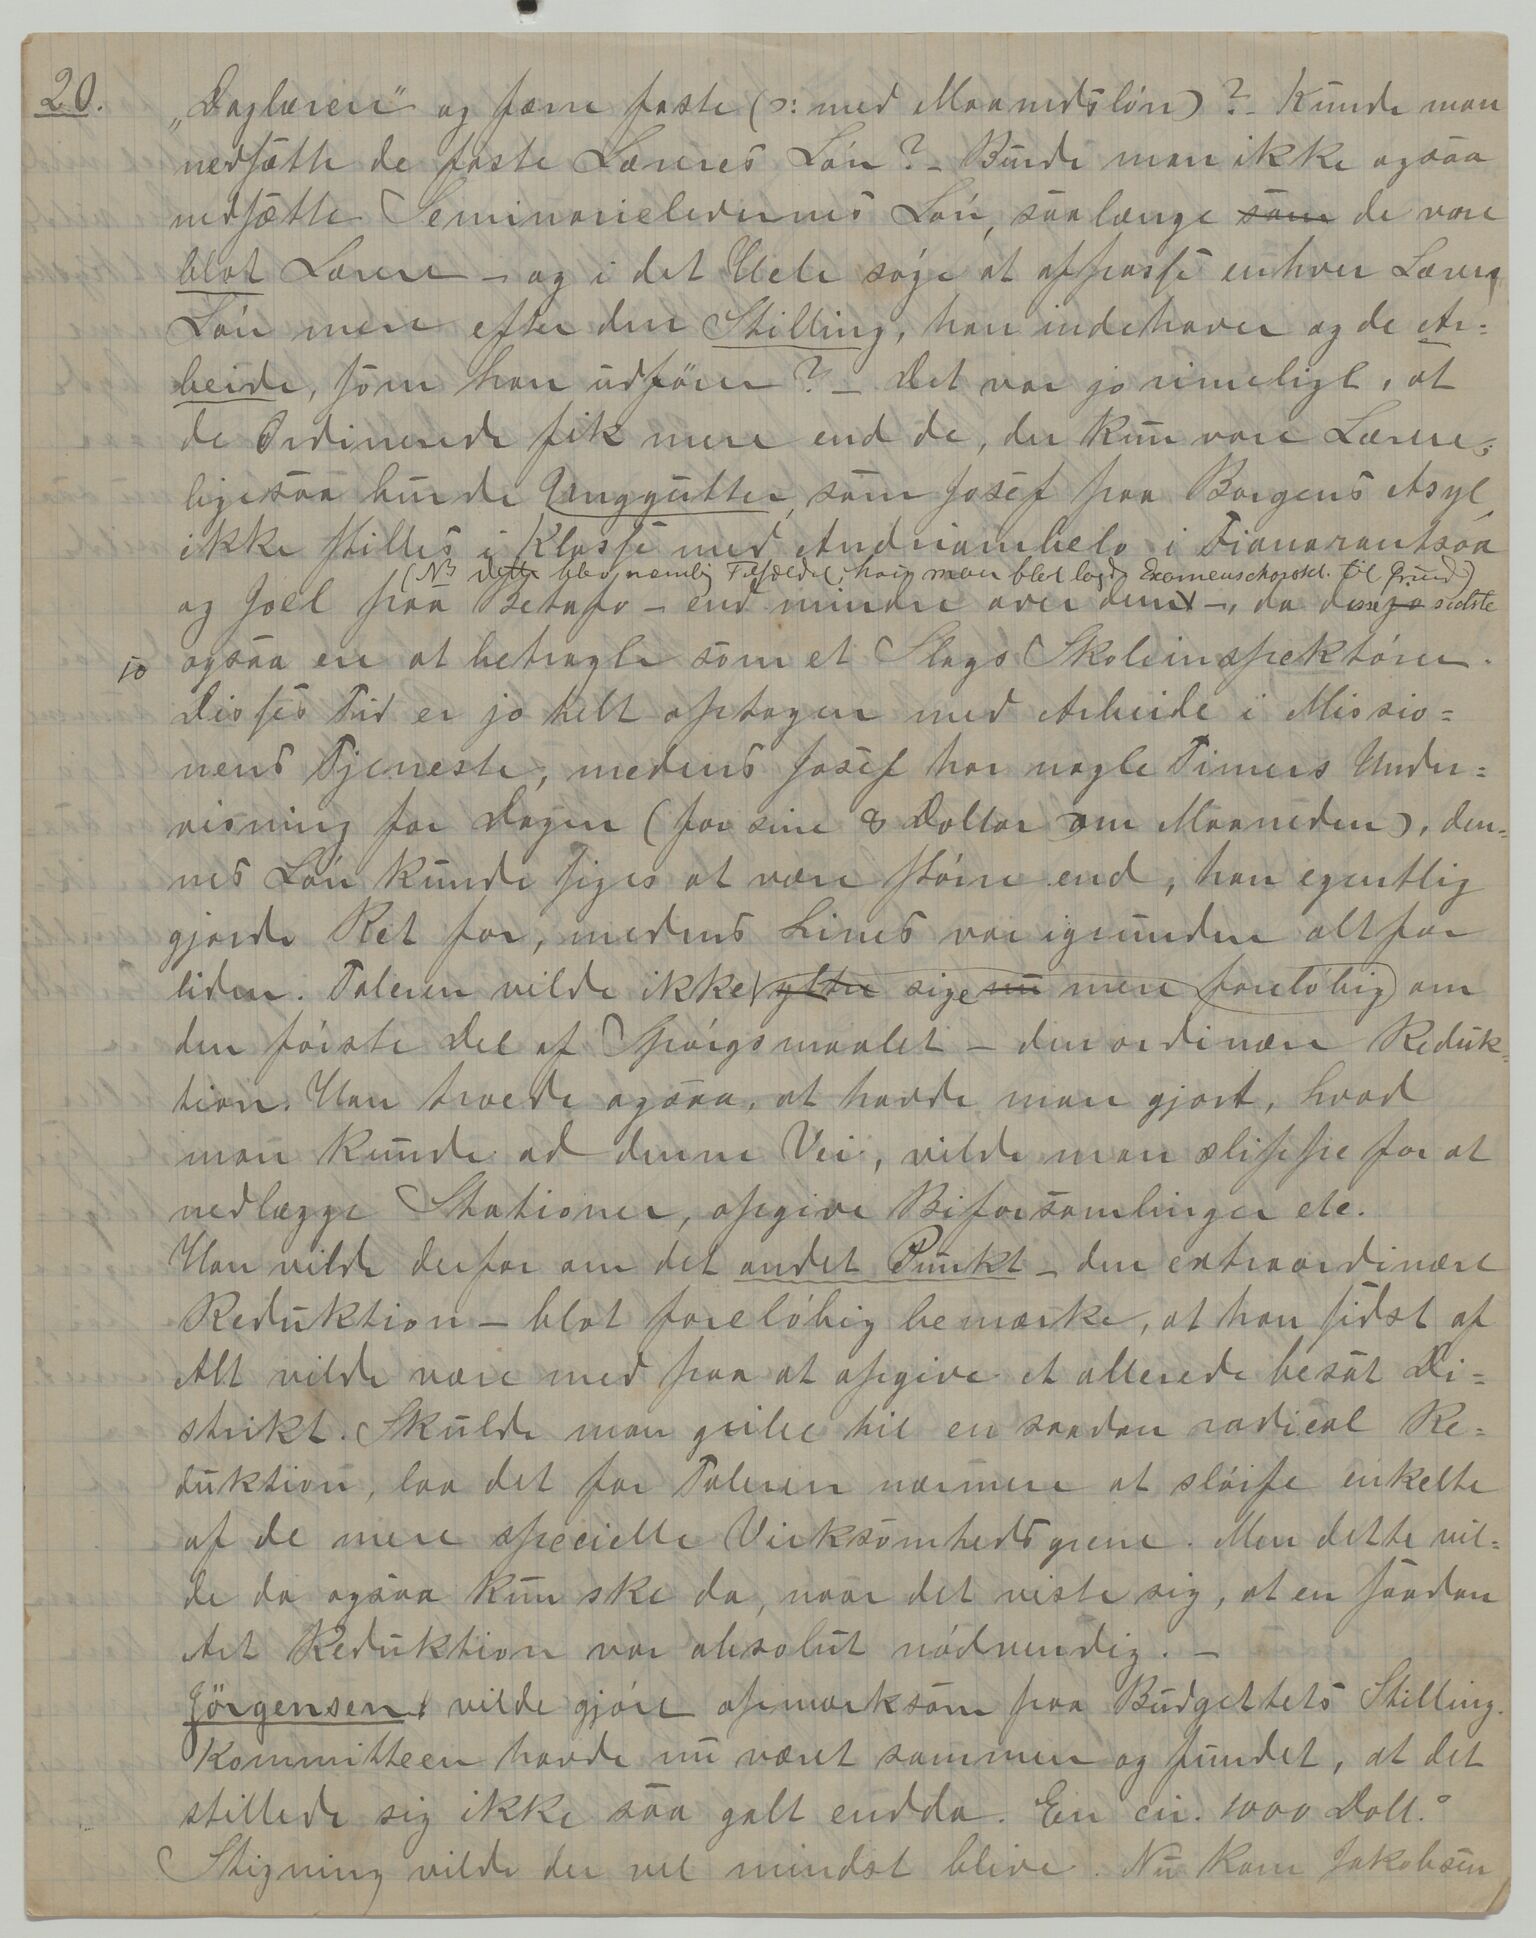 20.
„Daglærere" og færre faste (ɔ: med Maanedsløn)? – Kunde man
nedsætte de faste Læreres Løn? – Burde man ikke ogsaa
nedsætte Seminarieledernes Løn, saalænge som de vare
blot Lærere – og i det Hele søge at afpasse enhver Lærers
Løn mere efter den Stilling, han indehaver og de Ar=
beide, som han udfører? – Det var jo rimeligt, at
de Ordinerede fik mere end de, der kun vare Lærere;
ligesaa burde Unggutter, som Josef paa Borgens Asyl,
ikke stilles i Klasse med Andriambelo i Fianarantsoa
(NB dette blev nemlig Tilfældet, hvis man blot lagde Examenskarakt. til Grund)
og Joel paa Betafo – end mindre over dem –, da disse jo sidste
10 ogsaa er at betragte som et Slags Skoleinspektører.
Disses Tid er jo helt optagen med Arbeide i Missio=
nens Tjeneste, medens Josef har nogle Timers Under=
visning for Dagen (for sine 8 Dollar om Maaneden), den=
nes Løn kunde siges at være større end, han egentlig
gjorde Ret for, medens hines var igrunden altfor
liden. Taleren vilde ikke yttre sige nu mere foreløbig om
den første Del af Spørgsmaalet – den ordinære Reduk=
tion. Han troede ogsaa, at havde man gjort, hvad
man kunde ad denne Vei, vilde man slippe for at
nedlægge Stationer, opgive Biforsamlinger etc.
Han vilde derfor om det andet Punkt – den extraordinære
Reduktion – blot foreløbig bemærke, at han sidst af
Alt vilde være med paa at opgive et allerede besat Di=
strikt. Skulde man gribe til en saadan radical Re=
duktion, laa det for Taleren nærmere at sløife enkelte
af de mere specielle Virksomhedsgrene. Men dette vil=
de da ogsaa kun ske da, naar det viste sig, at en saadan
Art Reduktion var absolut nødvendig. –
Jørgensen vilde gjøre opmærksom paa Budgettets Stilling.
Kommitteen havde nu været sammen og fundet, at det
stillede sig ikke saa galt endda. En cir. 1000 Doll.
Stigning vilde der vel mindst blive. Nu kom Jakobsen